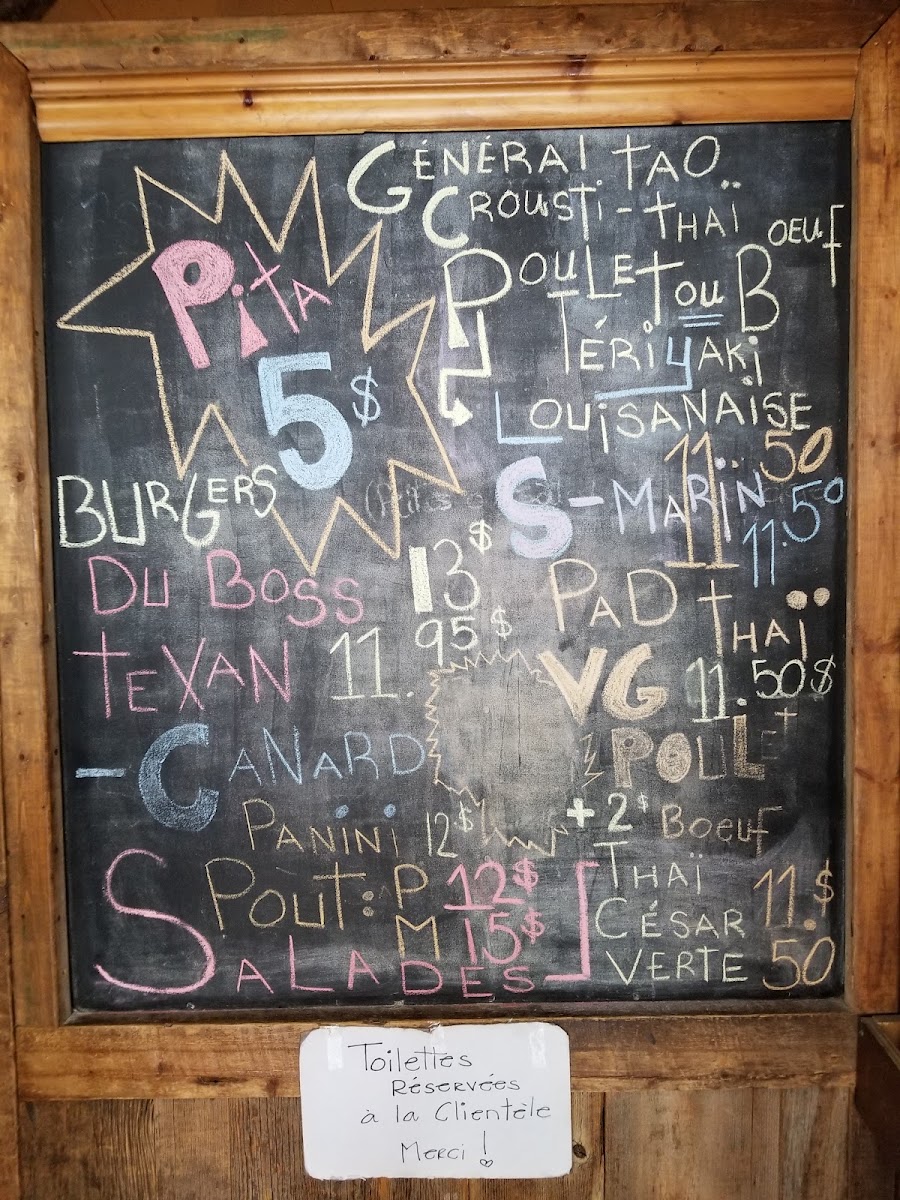 GÉNÉRAL TAO
CROUSTI-THAÏ
PITA
5$
POULET OU BOEUF
TÉRIYAKI
LOUISANAISE
11 50
S-MARIN
11.50
BURGERS
DU BOSS 13$
TEXAN 11.95$
-CANARD
PANINI 12$
POUT: P 12$
M 15$
PAD THAÏ
VG 11.50$
POULET
+2$ BOEUF
SALADES
THAÏ
CÉSAR 11.50$
VERTE
Toilettes
RÉSERVÉES
à la Clientèle
MERCI !